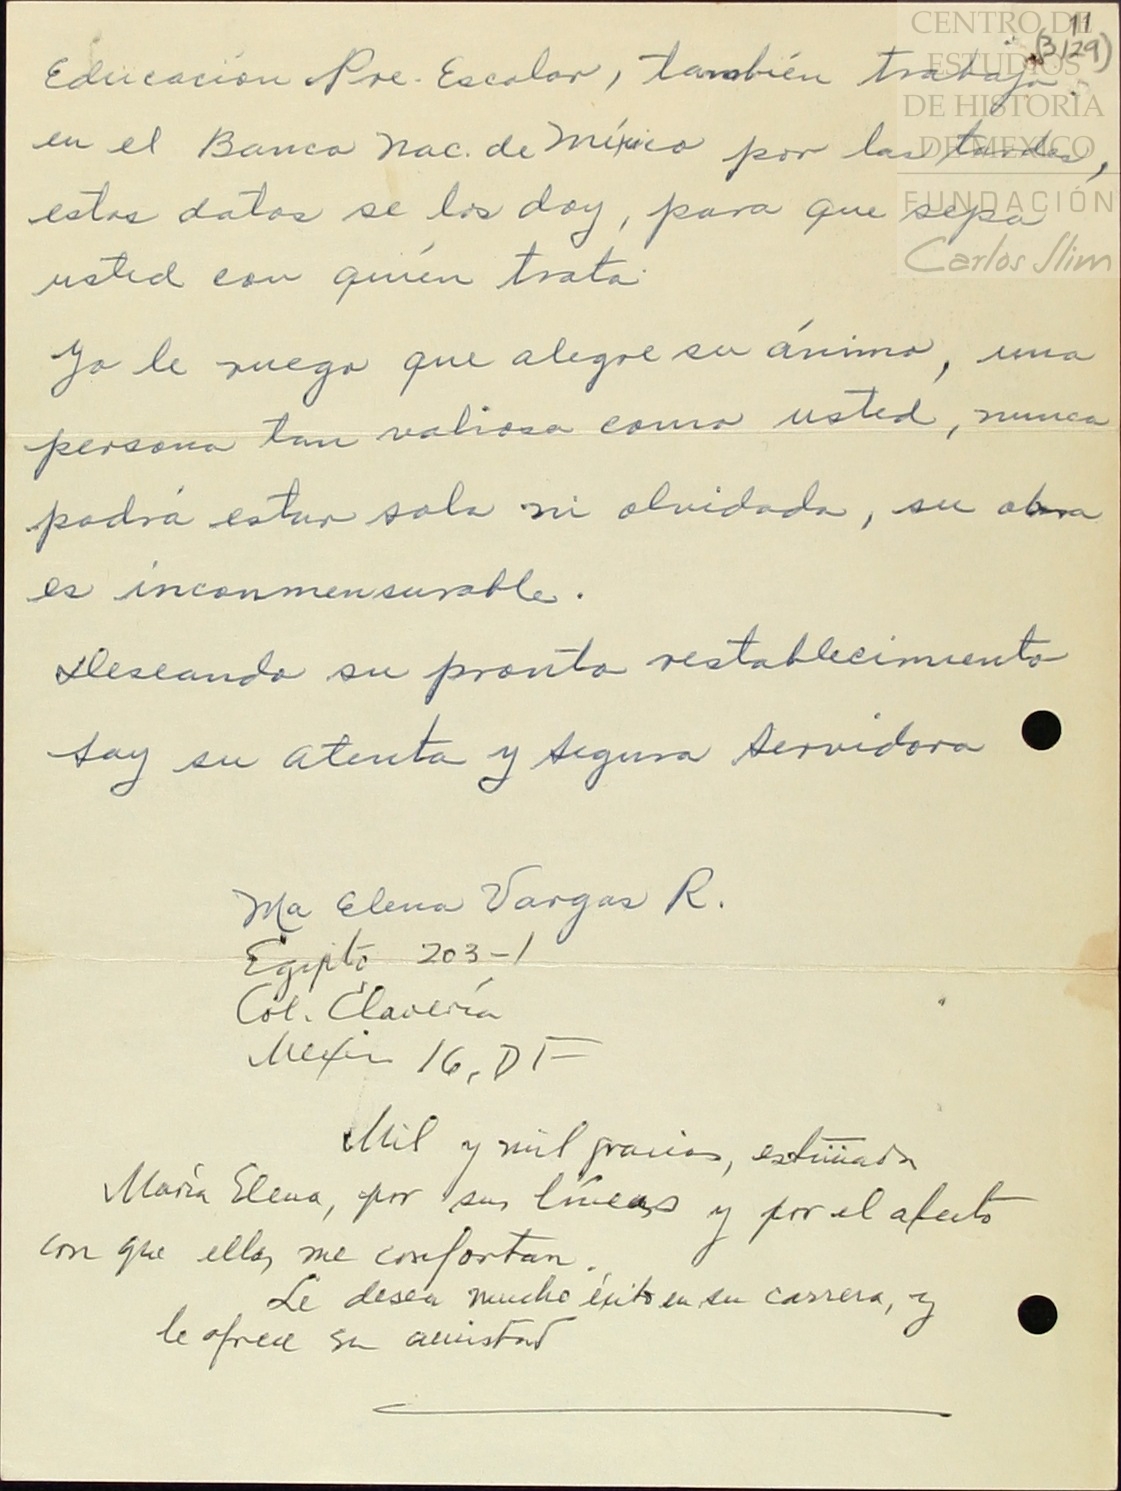 11
(3/29)
CENTRO DE
ESTUDIOS
DE HISTORIA
DE MEXICO
FUNDACIÓN
Carlos Slim
Educación Pre-Escolar, también trabajo
en el Banco Nac. de México por las tardes,
estos datos se los doy, para que sepa
usted con quién trata.
Yo le ruego que alegre su ánimo, una
persona tan valiosa como usted, nunca
podrá estar sola ni olvidada, su obra
es inconmensurable.
Deseando su pronto restablecimiento
soy su atenta y segura servidora
Ma Elena Vargas R.
Egipto 203-1
Col. Clavería
Mexico 16, DF
Mil y mil gracias, estimada
María Elena, por sus líneas y por el afecto
con que ellas me confortan.
Le desea mucho éxito en su carrera, y
le ofrece su amistad